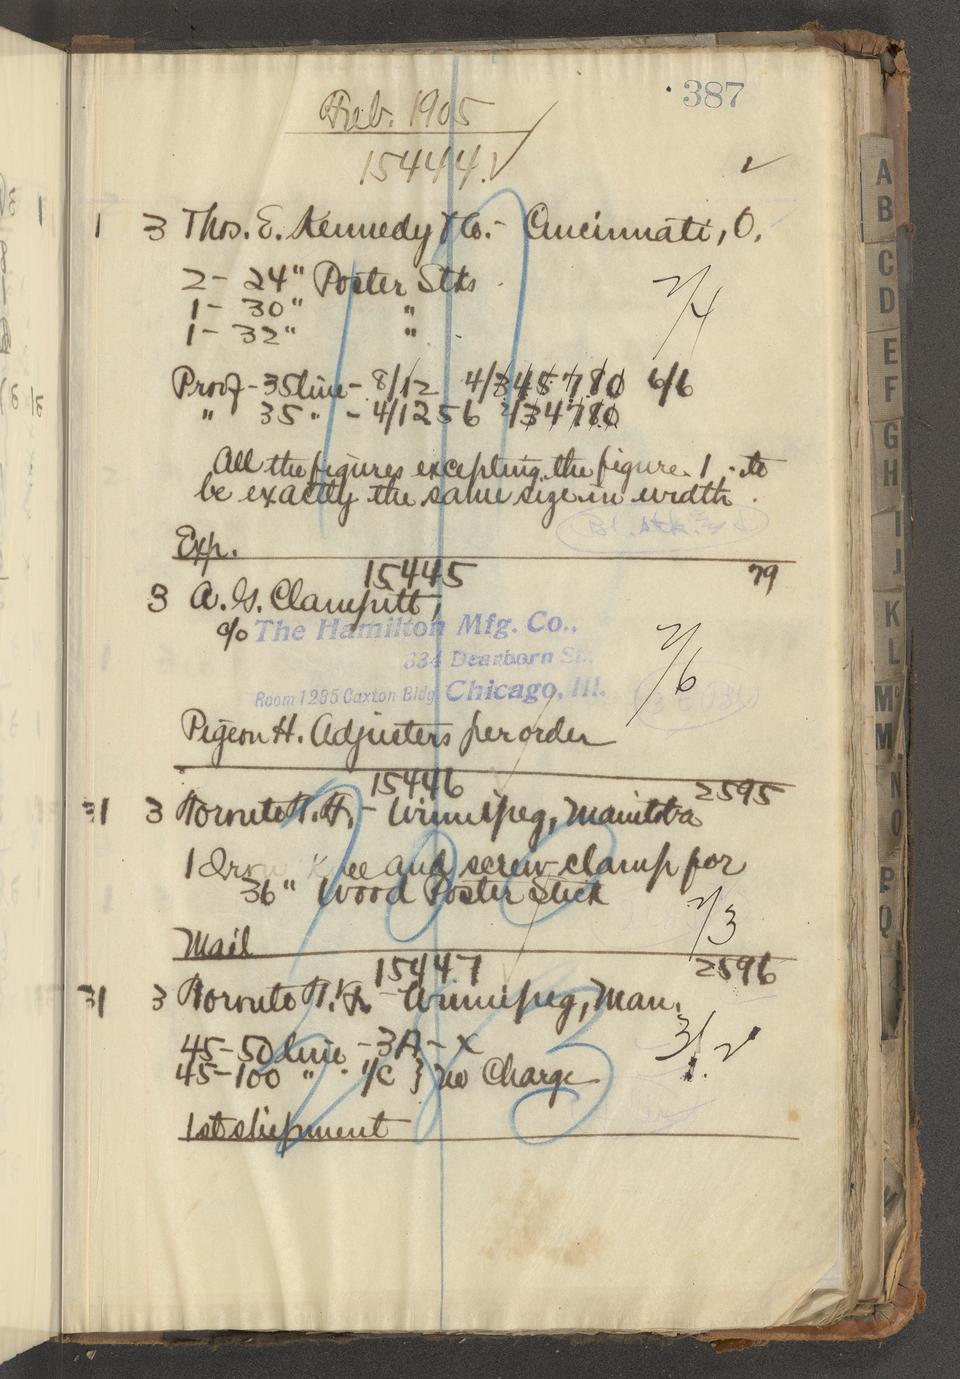 387
Feb. 1905
15444
1 3 Thos. E. Kennedy & Co. - Cincinnati, O.
2 - 24" Poster Stks
1 - 30" "
1 - 32" "
2/4
Proof - 35 line - 8/12 4/345780 6/6
" 35 " - 4/1256 2/34780
All the figures excepting the figure 1 - to
be exactly the same size in width.
Exp.
15445 79
3 A. G. Clampitt,
c/o The Hamilton Mfg. Co.,
334 Dearborn St.,
Room 1295 Caxton Bldg. Chicago, Ill.
2/6
Pigeon H. Adjusters per order
15446 2595
31 3 Toronto T. F. - Winnipeg, Manitoba
1 Knee and screw clamp for
36" Wood Poster Stick
2/3
Mail
15447 2596
31 3 Toronto T. F. - Winnipeg, Man.
45 - 50 line - 3A - x
45 - 100 " - 1/C } No Charge
3/2
1st shipment
A
B
C
D
E
F
G
H
I
J
K
L
Mc
M
N
O
P
Q